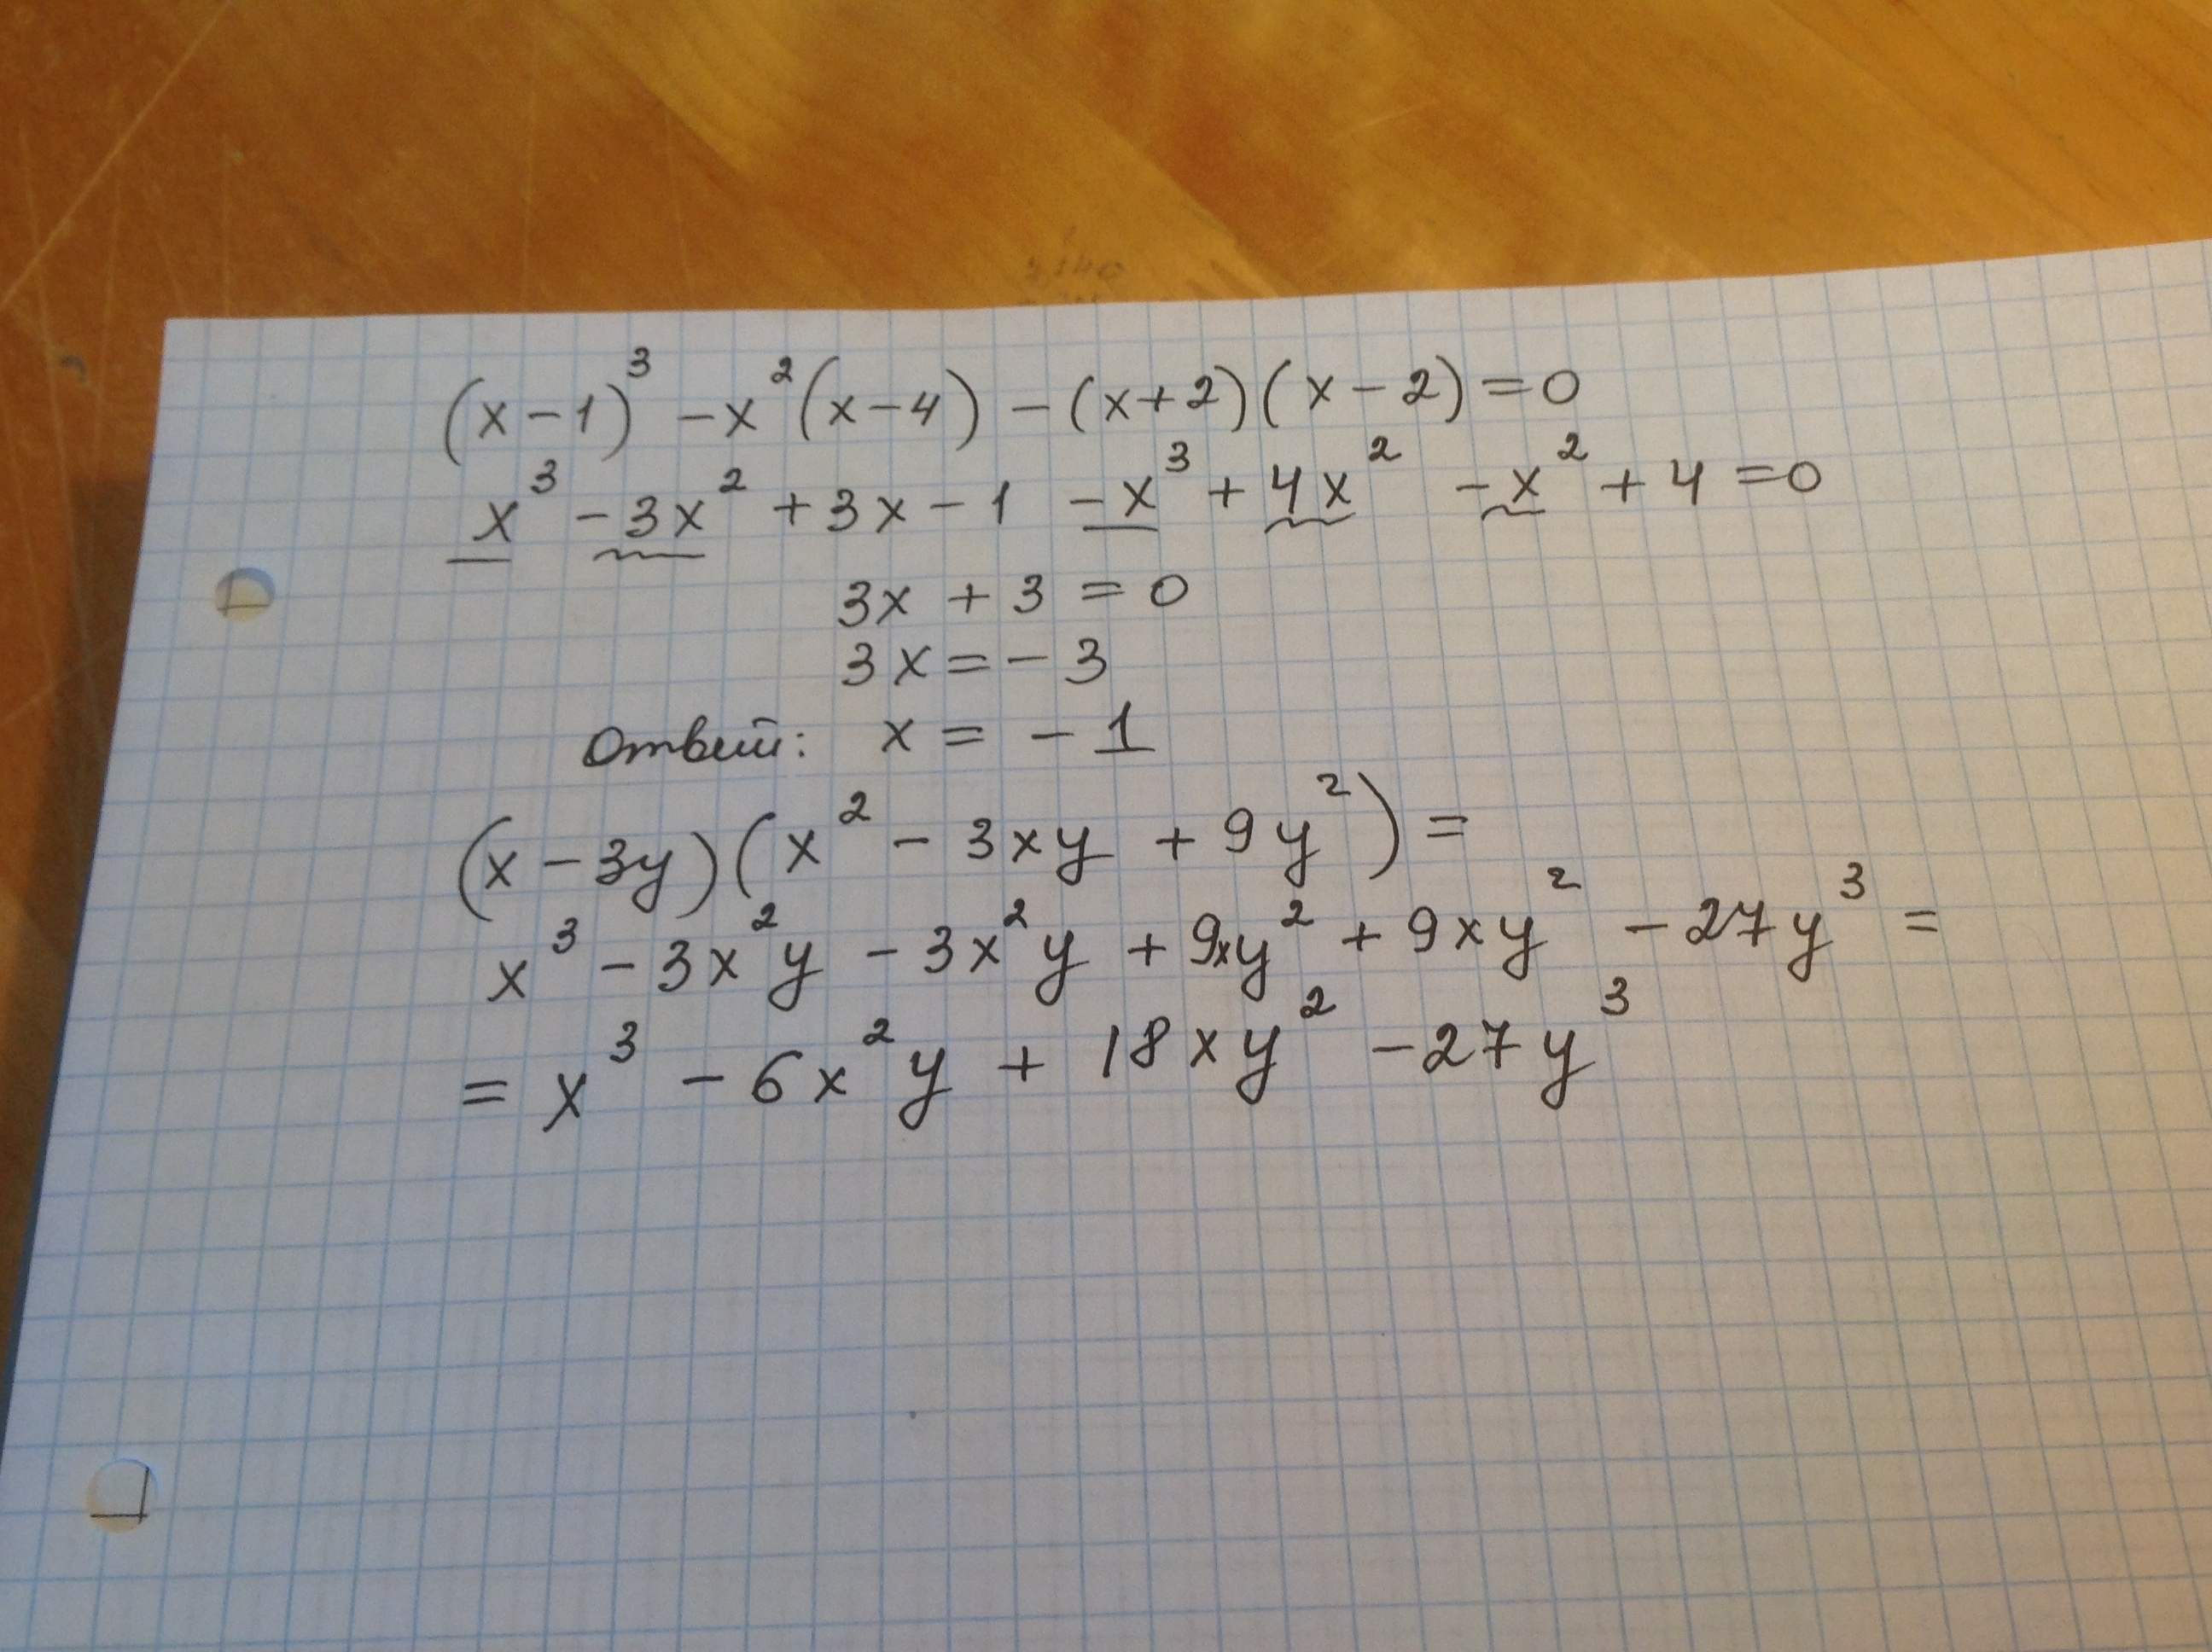 (x-1)³ -x²(x-4) -(x+2)(x-2)=0
x³ -3x² +3x-1 -x³ +4x² -x² +4 =0
3x +3 =0
3x=-3
Ответ: x = -1
(x-3y)(x² -3xy +9y²)=
x³ -3x²y -3x²y +9xy² +9xy² -27y³ =
= x³ -6x²y + 18xy² -27y³